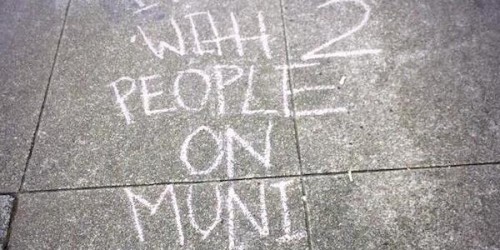 WITH 2
PEOPLE
ON
MUNI